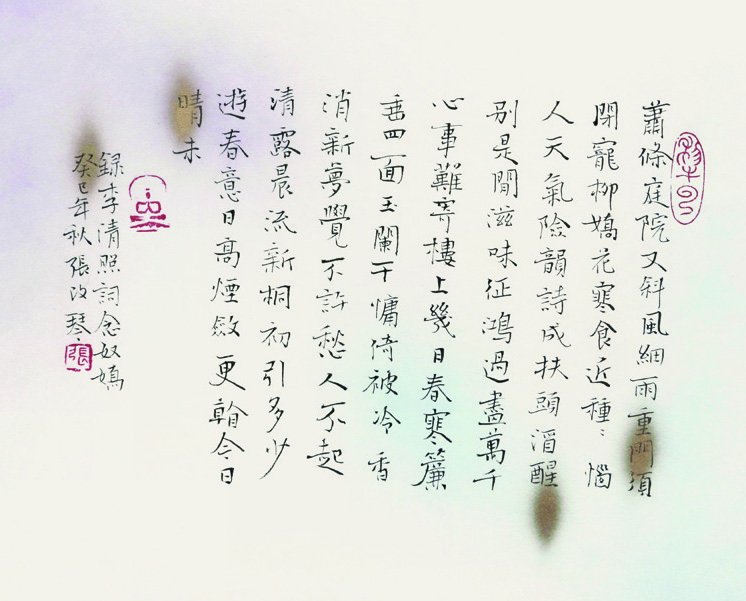 蕭條庭院又斜風細雨重門須
閉寵柳嬌花寒食近種〻惱
人天氣險韻詩成扶頭酒醒
别是閒滋味征鴻過盡萬千
心事難寄樓上幾日春寒簾
垂四面玉闌干慵倚被冷香
消新夢覺不許愁人不起
清露晨流新桐初引多少
遊春意日高煙斂更看今日
晴未
錄李清照詞念奴嬌
癸巳年秋張改琴
張